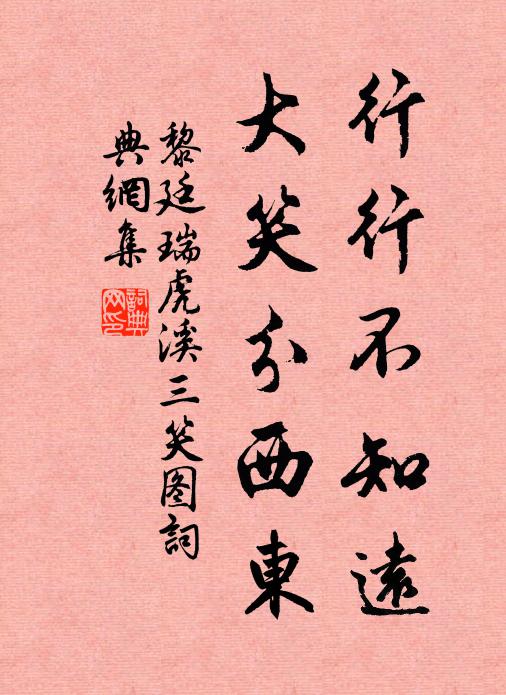 行行不知遠
大笑分西東
黎廷瑞虎溪三笑图詞
典網集
詞典
网印